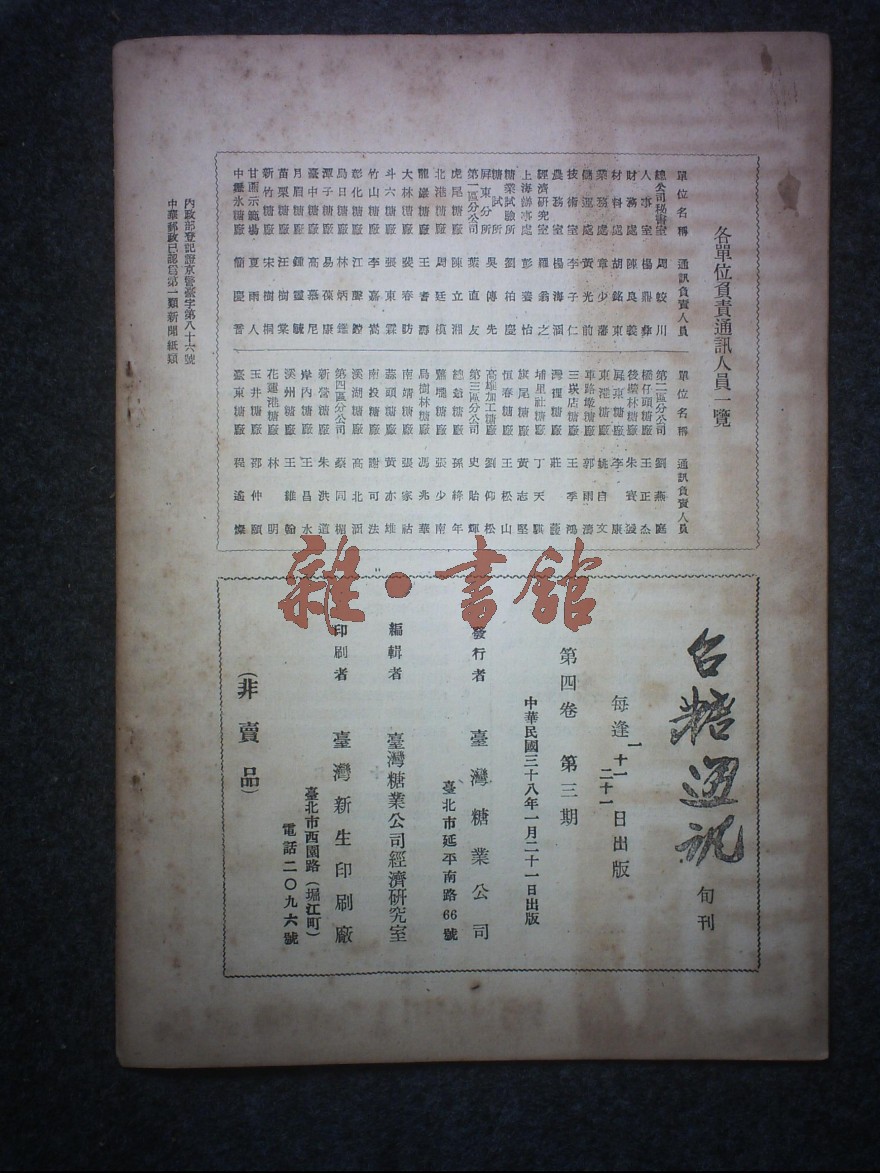 各單位負責通訊人員一覽
單位名稱 通訊負責人員
總公司秘書室 周蛟川
人事室 楊鼎彝
財務處 陳良義
材料處 胡銘東
業務處 章少藩
儲運處 黃光前
技術室 李子仁
農務室 楊海涵
經濟研究室 羅翁之
上海辦事處 彭
糖業試驗所 劉柏慶
糖試所屏東分所 吳傳先
第一區分公司 葉直友
虎尾糖廠 陳立湘
北港糖廠 周廷槙
龍巖糖廠 王耆壽
大林糖廠 裴春昉
斗六糖廠 張東霖
竹山糖廠 李嘉嵩
彰化糖廠 江聲鏗
烏日糖廠 林炳鍾
潭子糖廠 易葆康
臺中糖廠 高慕尼
月眉糖廠 鍾靈毓
苗栗糖廠 汪樹棠
新竹糖廠 宋樹桐
甘蔗示範場 夏雨人
中壢氷糖廠 簡慶晋
單位名稱 通訊負責人員
第二區分公司 劉燕庭
橋仔頭糖廠 王正
後壁林糖廠 朱賓
屏東糖廠 李康
東港糖廠 姚自文
車路墘糖廠 郭雨濤
三崁店糖廠 王季鴻
灣裡糖廠 莊
埔里社糖廠 丁天騏
旗尾糖廠 黃志堅
恆春糖廠 王松山
高雄加工糖廠 劉仰松
第三區分公司 史貽輝
總爺糖廠 孫終年
蕭壠糖廠 張少南
烏樹林糖廠 馮兆華
南靖糖廠 張家祜
蒜頭糖廠 黃亦雄
南投糖廠 謝可法
溪湖糖廠 高北涵
第四區分公司 蔡同
新營糖廠 朱洪道
岸內糖廠 王昌水
溪州糖廠 王維翰
花蓮港糖廠 林明
玉井糖廠 邵仲頤
臺東糖廠 程遙燦
內政部登記證京警臺字第八十六號
中華郵政已認為第一類新聞紙類
台糖通訊 旬刊
每逢一十一二十一日出版
第四卷 第三期
中華民國三十八年一月二十一日出版
發行者 臺灣糖業公司
臺北市延平南路66號
編輯者 臺灣糖業公司經濟研究室
印刷者 臺灣新生印刷廠
臺北市西園路(堀江町)
電話二〇九六號
(非賣品)
雜·書館